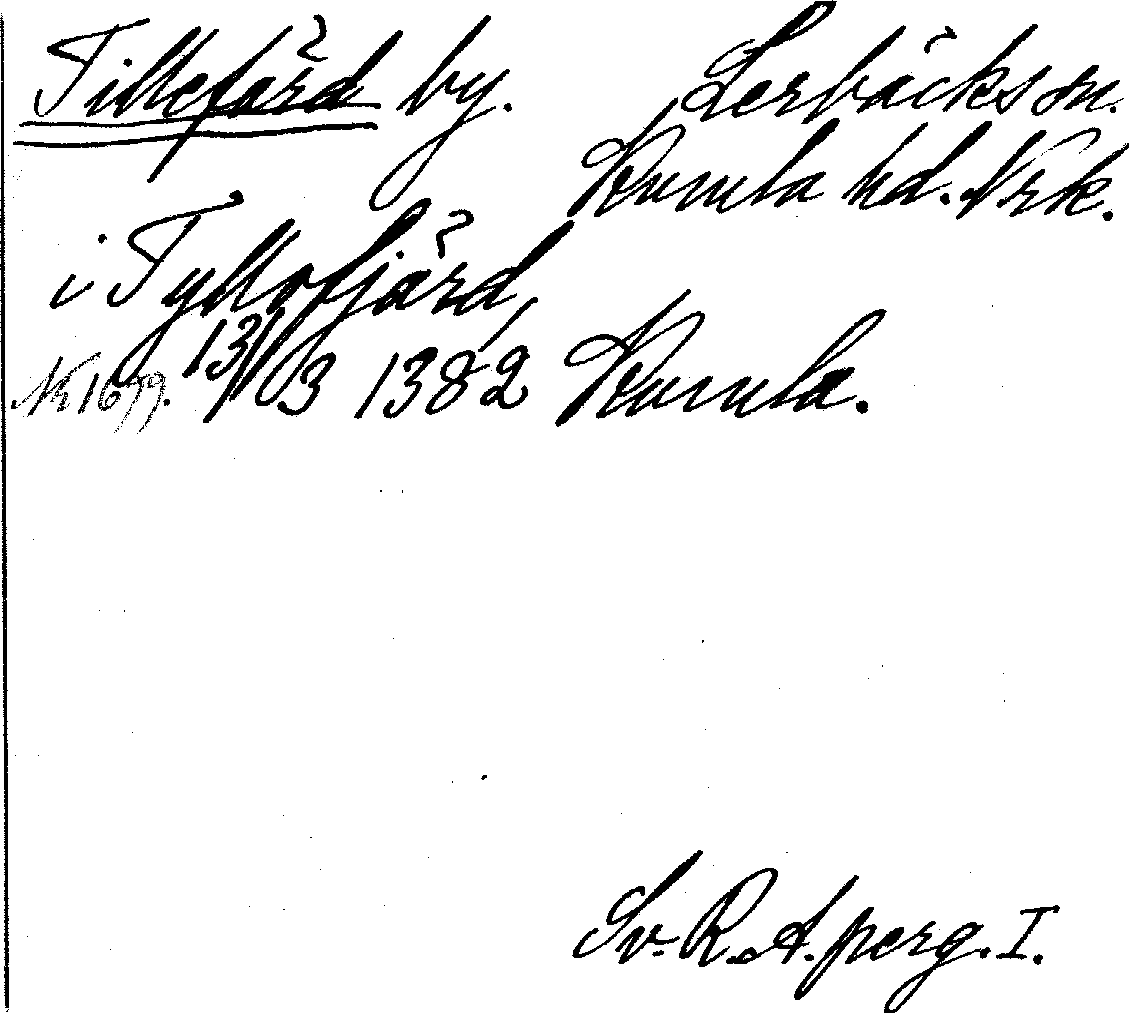 Tillefärd by. Lerbäcks sn.
Kumla hd. Nrk.
i Tyllofjärd,
Nr 1699. 13/3 1382 Kumla.
Sv. R.A. perg. I.